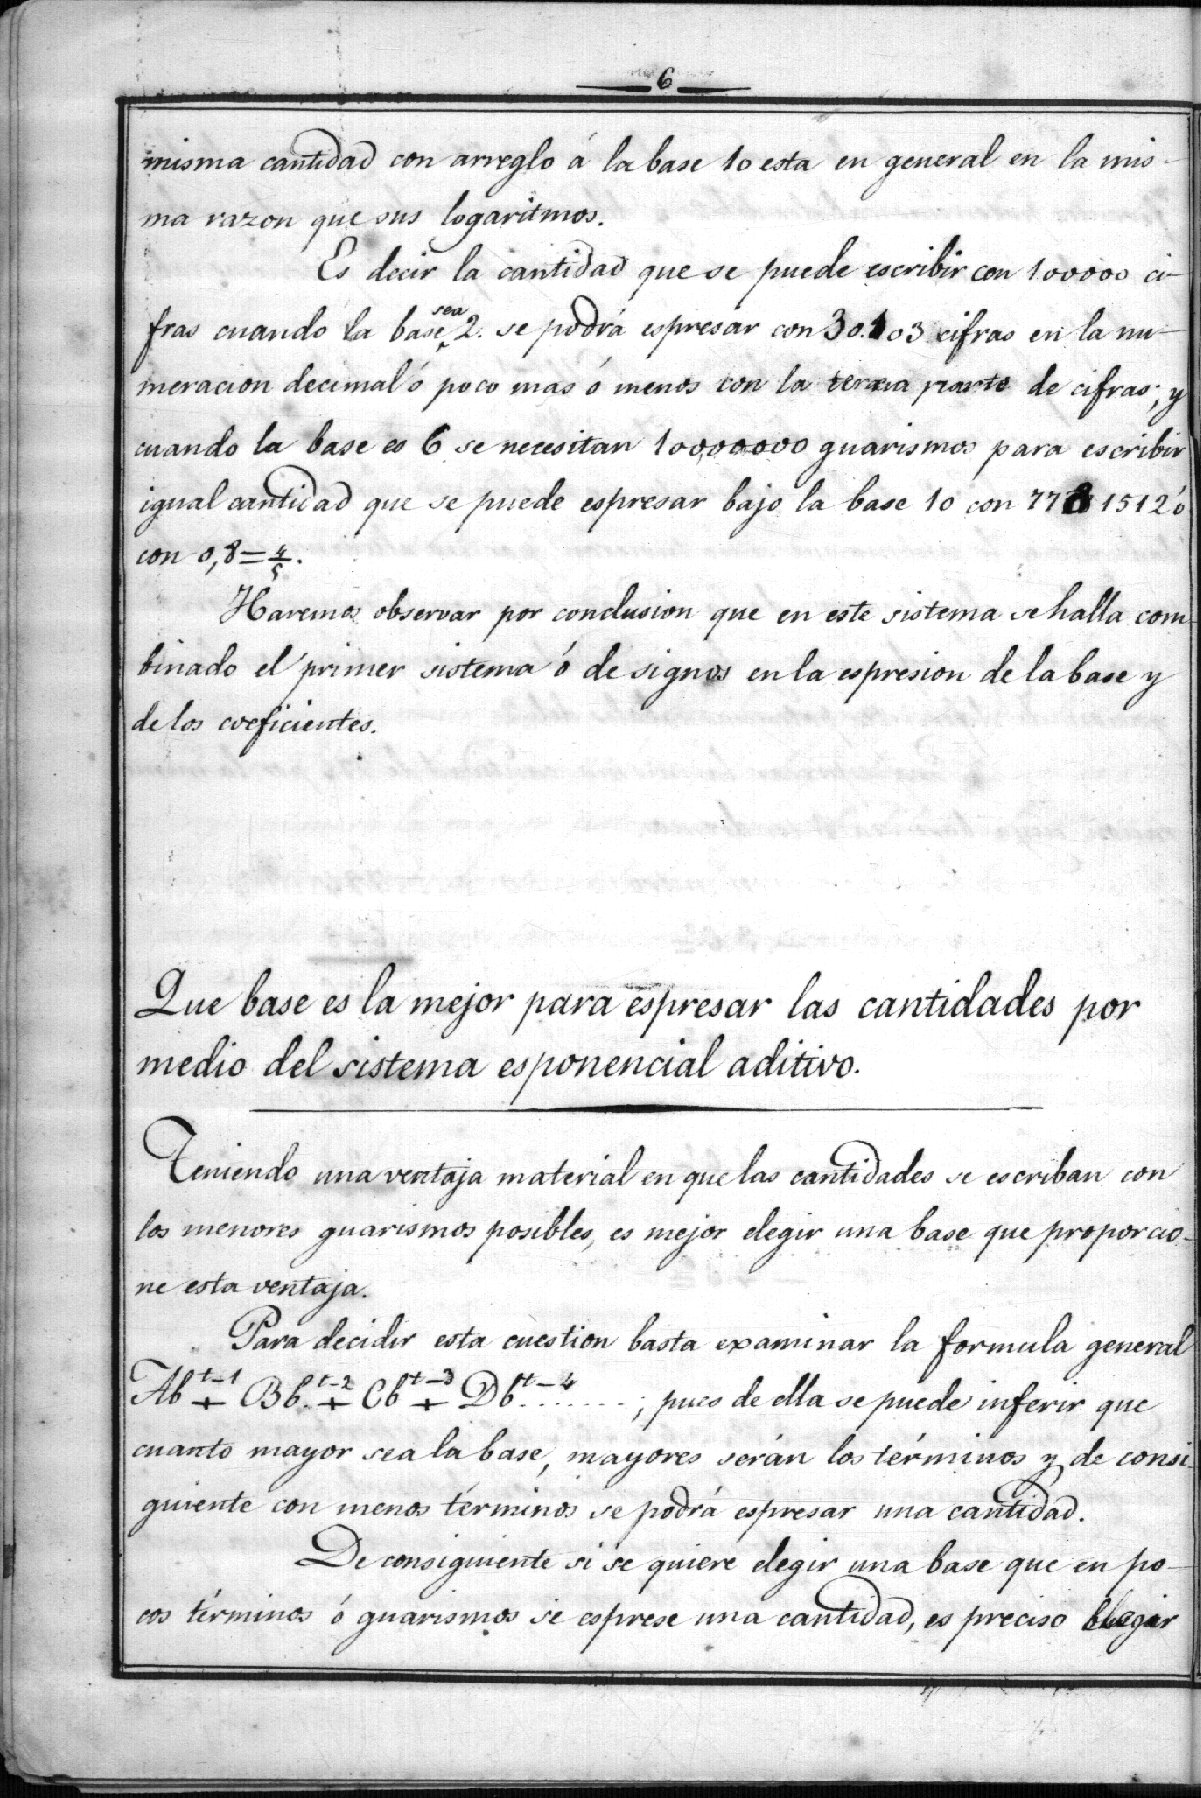 6
misma cantidad con arreglo á la base 10 esta en general en la mis-
ma razon que sus logaritmos.
Es decir la cantidad que se puede escribir con 100000 ci-
fras cuando la base sea 2. se podrá espresar con 30.103 cifras en la nu-
meracion decimal ó poco mas ó menos con la tercia parte de cifras; y
cuando la base es 6 se necesitan 10000000 guarismos para escribir
igual cantidad que se puede espresar bajo la base 10 con 7781512 ó
con 0,8=4/5.
Haremos observar por conclusion que en este sistema se halla com-
binado el primer sistema ó de signos en la espresion de la base y
de los coeficientes.
Que base es la mejor para espresar las cantidades por
medio del sistema esponencial aditivo.
Teniendo una ventaja material en que las cantidades se escriban con
los menores guarismos posibles, es mejor elegir una base que proporcio-
ne esta ventaja.
Para decidir esta cuestion basta examinar la formula general
Ab^t-1 + Bb^t-2 + Cb^t-3 + Db^t-4 .......; pues de ella se puede inferir que
cuanto mayor sea la base, mayores serán los términos y de consi-
guiente con menos términos se podrá espresar una cantidad.
De consiguiente si se quiere elegir una base que en po-
cos términos ó guarismos se esprese una cantidad, es preciso elegir